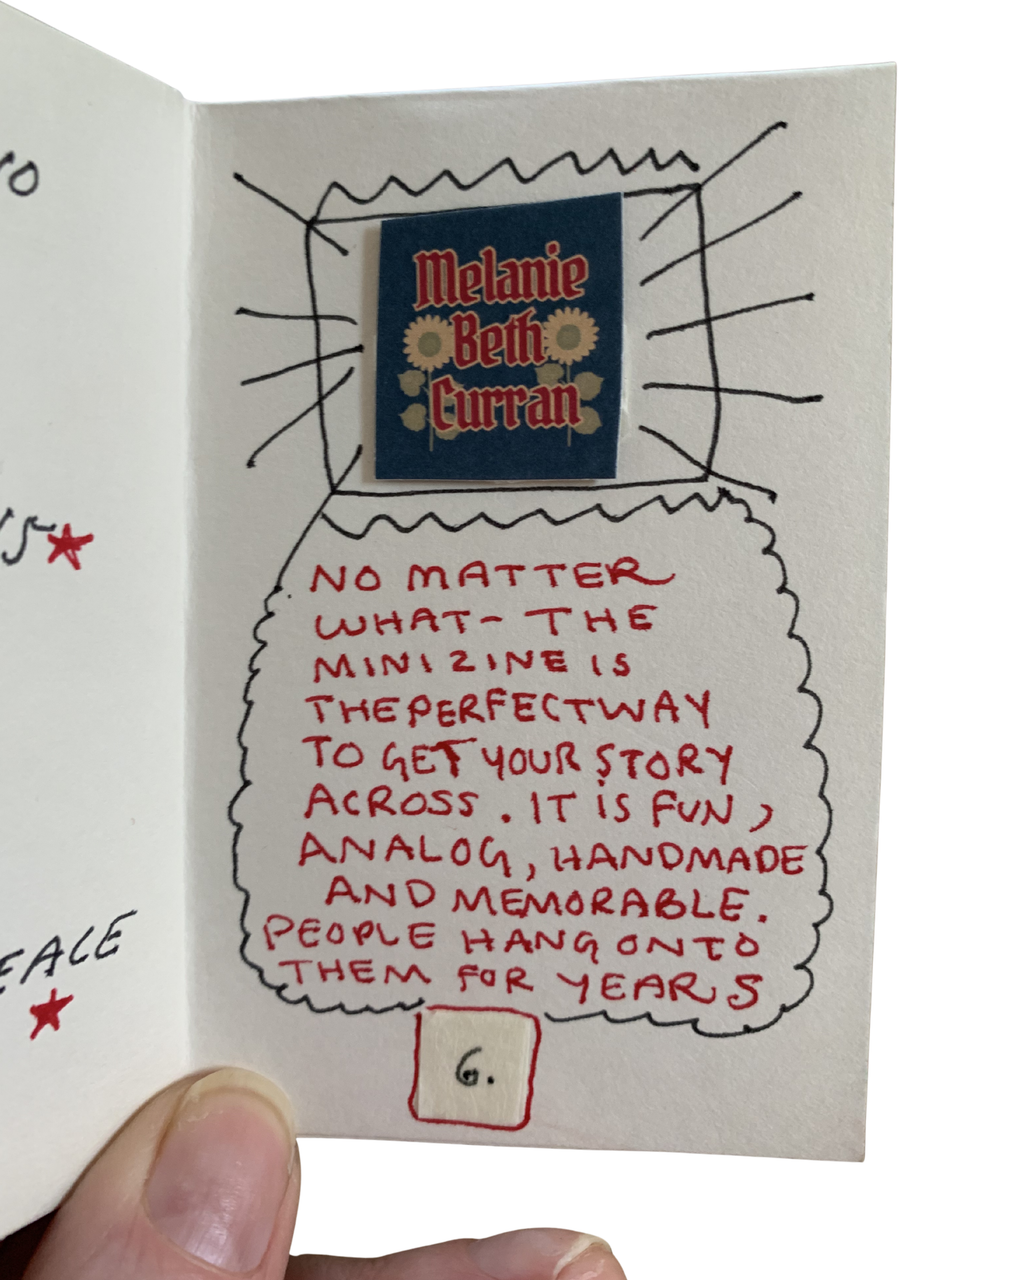 Melanie
Beth
Curran
NO MATTER
WHAT- THE
MINI ZINE IS
THE PERFECT WAY
TO GET YOUR STORY
ACROSS. IT IS FUN,
ANALOG, HANDMADE
AND MEMORABLE.
PEOPLE HANG ONTO
THEM FOR YEARS
6.